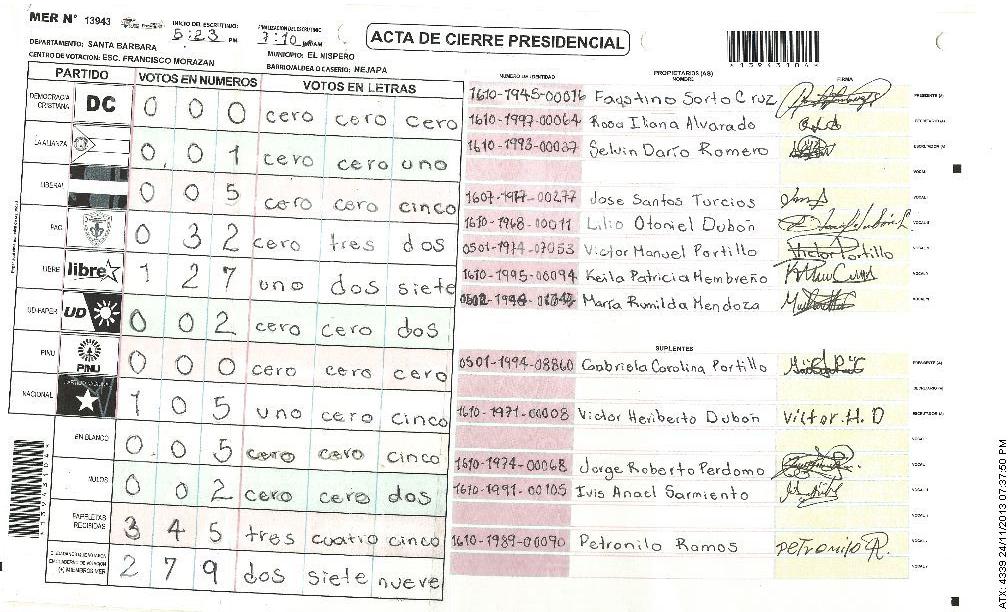 MER N° 13943
INICIO DEL ESCRUTINIO:
5:23 PM
7:10
ACTA DE CIERRE PRESIDENCIAL
DEPARTAMENTO: SANTA BARBARA
MUNICIPIO: EL NISPERO
CENTRO DE VOTACION: ESC. FRANCISCO MORAZAN
BARRIO/ALDEA O CASERIO: NEJAPA
PARTIDO VOTOS EN NUMEROS VOTOS EN LETRAS
DEMOCRACIA CRISTIANA DC 0 0 0 cero cero cero
LA ALIANZA 0 0 1 cero cero uno
LIBERAL 0 0 5 cero cero cinco
PAC 0 3 2 cero tres dos
LIBRE libre 1 2 7 uno dos siete
UD-FAPER UD 0 0 2 cero cero dos
PINU PINU 0 0 0 cero cero cero
NACIONAL 1 0 5 uno cero cinco
EN BLANCO 0 0 5 cero cero cinco
NULOS 0 0 2 cero cero dos
PAPELETAS RECIBIDAS 3 4 5 tres cuatro cinco
(+) MIEMBROS MER 2 7 9 dos siete nueve
NUMERO DE IDENTIDAD PROPIETARIOS (AS) NOMBRE FIRMA
1610-1945-00016 Faustino Sorto Cruz PRESIDENTE (A)
1610-1997-00064 Rosa Iliana Alvarado SECRETARIO (A)
1610-1993-00037 Selvin Darío Romero ESCRUTADOR (A)
VOCAL I
1607-1977-00277 Jose Santos Turcios
1610-1968-00011 Lilio Otoniel Dubón
0501-1974-07053 Victor Manuel Portillo Victor Portillo
1610-1995-00094 Keila Patricia Membreño
María Rumilda Mendoza
SUPLENTES
0501-1994-08860 Gabriela Carolina Portillo PRESIDENTE (A)
SECRETARIO (A)
1610-1971-00008 Victor Heriberto Dubón Victor. H. D ESCRUTADOR (A)
1610-1974-00068 Jorge Roberto Perdomo
1610-1991-00105 Ivis Anael Sarmiento
1610-1989-00090 Petronilo Ramos Petronilo R.
ATX: 4339 24/11/2013 07:37:50 PM